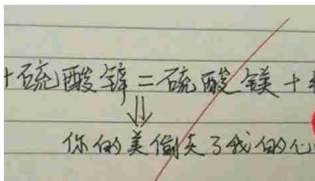 +硫酸锌=硫酸镁+
你的美偷走了我的心